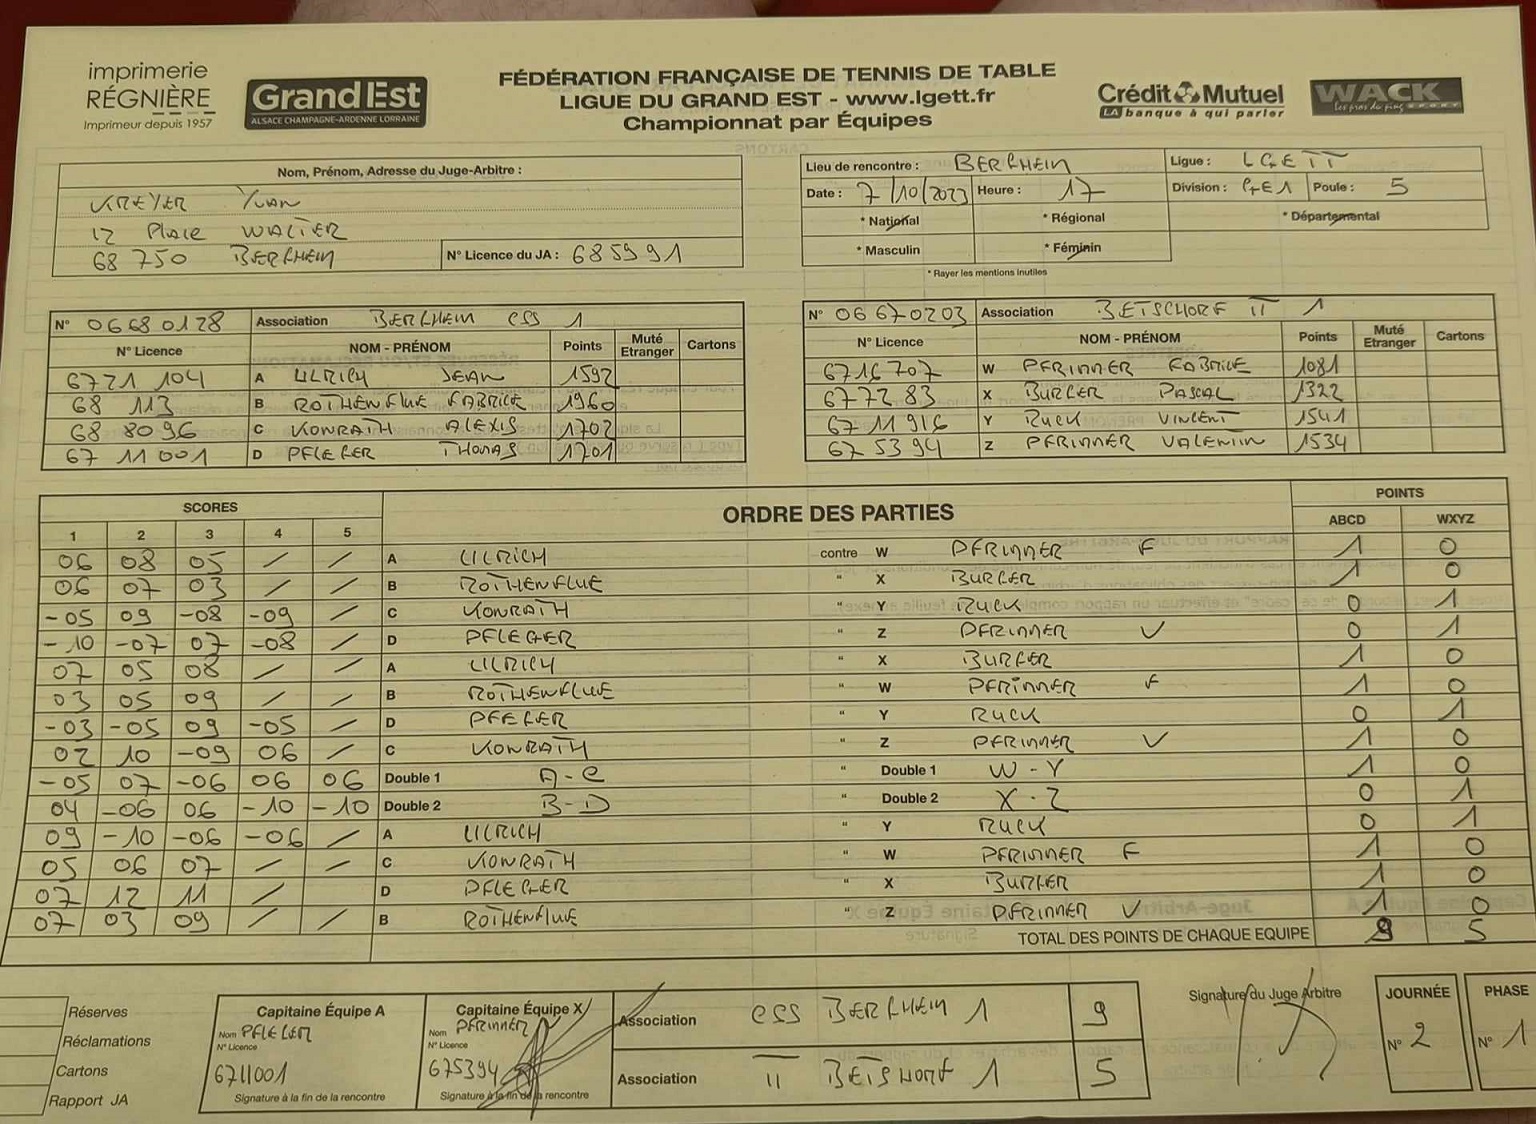 imprimerie
RÉGNIÈRE
Imprimeur depuis 1957
Grand Est
ALSACE CHAMPAGNE-ARDENNE LORRAINE
FÉDÉRATION FRANÇAISE DE TENNIS DE TABLE
LIGUE DU GRAND EST - www.lgett.fr
Championnat par Équipes
Crédit Mutuel
LA banque à qui parler
WACK
Les pros du ping SPORT
Nom, Prénom, Adresse du Juge-Arbitre :
KREYER YVAN
12 Place WALTER
68 750 BERGHEIM
N° Licence du JA : 685991
Lieu de rencontre : BERGHEIM
Ligue : LGETT
Date : 7/10/2023 Heure : 17
Division : GE1 Poule : 5
* National * Régional * Départemental
* Masculin * Féminin
* Rayer les mentions inutiles
N° 06680128 Association BERGHEIM CSS 1
N° Licence NOM - PRÉNOM Points Muté Etranger Cartons
6721 104 A ULRICH JEAN 1592
68 113 B ROTHENFLUE FABRICE 1960
68 8096 C KONRATH ALEXIS 1702
67 11001 D PFLEGER THOMAS 1701
N° 06670203 Association BETSCHDORF TT 1
N° Licence NOM - PRÉNOM Points Muté Etranger Cartons
6716707 W PFRIMMER FABRICE 1081
677283 X BURGER PASCAL 1322
67 11916 Y RUCK VINCENT 1541
67 5394 Z PFRIMMER VALENTIN 1534
SCORES
1 2 3 4 5
ORDRE DES PARTIES
POINTS
ABCD WXYZ
06 08 05 / / A ULRICH contre W PFRIMMER F 1 0
06 07 03 / / B ROTHENFLUE " X BURGER 1 0
-05 09 -08 -09 / C KONRATH " Y RUCK 0 1
-10 -07 07 -08 / D PFLEGER " Z PFRIMMER V 0 1
07 05 08 / / A ULRICH " X BURGER 1 0
03 05 09 / / B ROTHENFLUE " W PFRIMMER F 1 0
-03 -05 09 -05 / D PFLEGER " Y RUCK 0 1
02 10 -09 06 / C KONRATH " Z PFRIMMER V 1 0
-05 07 -06 06 06 Double 1 A-C " Double 1 W-Y 1 0
04 -06 06 -10 -10 Double 2 B-D " Double 2 X-Z 0 1
09 -10 -06 -06 / A ULRICH " Y RUCK 0 1
05 06 07 / / C KONRATH " W PFRIMMER F 1 0
07 12 11 / D PFLEGER " X BURGER 1 0
07 03 09 / / B ROTHENFLUE " Z PFRIMMER V 1 0
TOTAL DES POINTS DE CHAQUE EQUIPE 9 5
Réserves
Réclamations
Cartons
Rapport JA
Capitaine Équipe A
Nom PFLEGER
N° Licence
6711001
Signature à la fin de la rencontre
Capitaine Équipe X
Nom PFRIMMER
N° Licence
675394
Signature à la fin de la rencontre
Association CSS BERGHEIM 1 9
Association TT BETSCHDORF 1 5
Signature du Juge Arbitre
JOURNÉE
N° 2
PHASE
N° 1